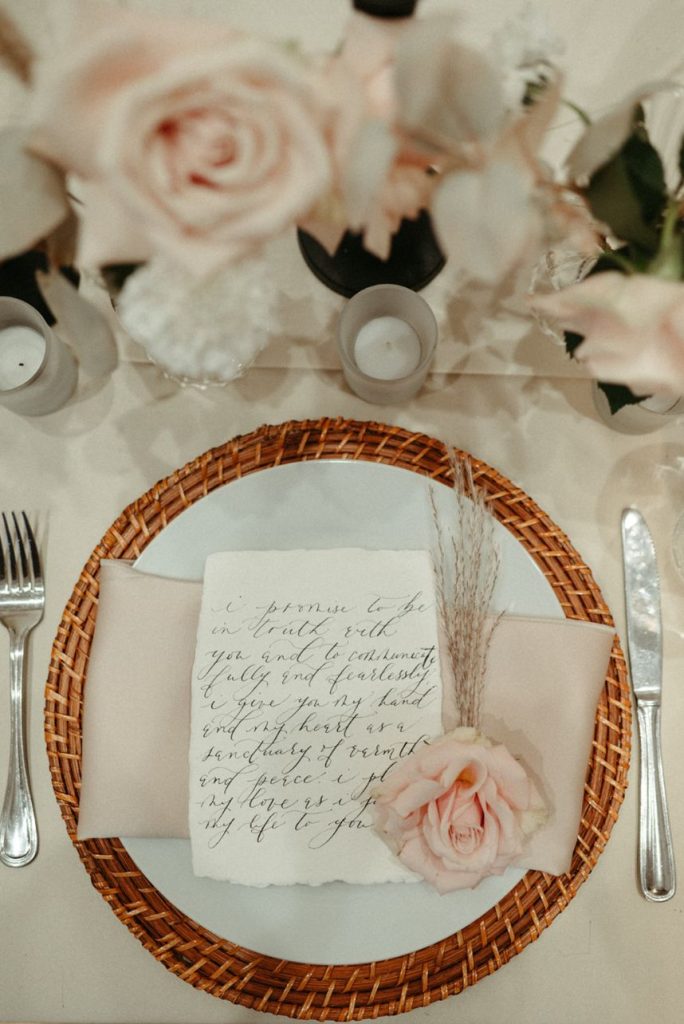 i promise to be
in truth with
you and to communicate
fully and fearlessly
i give you my hand
and my heart as a
sanctuary of warmth
and peace. i pl
my love as i j
my life to you